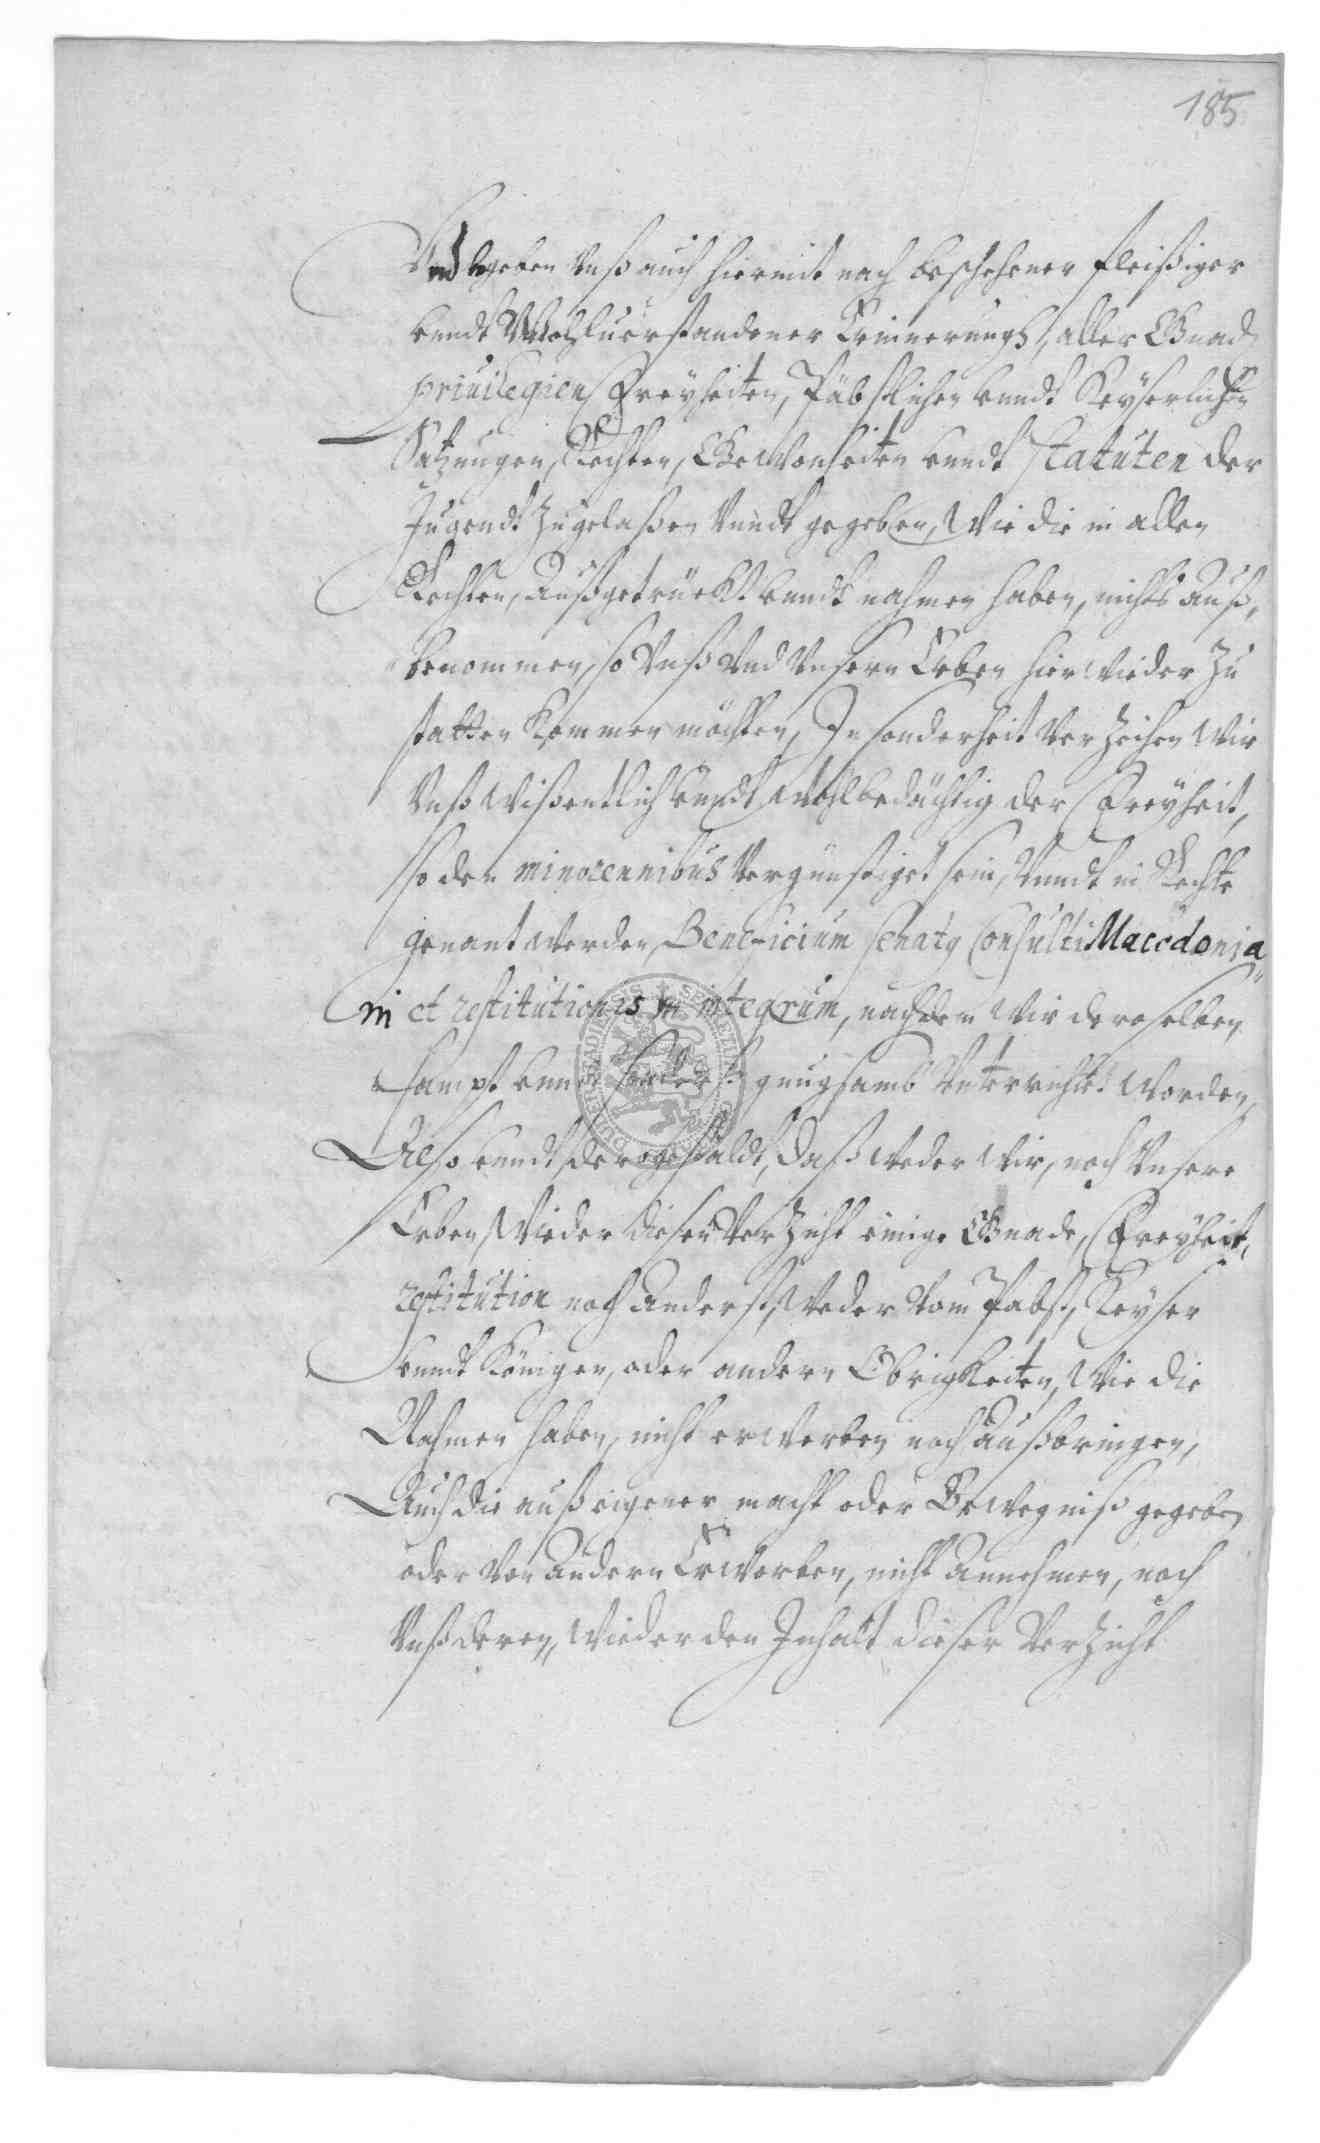 185
Vnd begeben Vnß auch hiermit nach beschehener fleißiger
vnndt Wohluerstandener Erinnerungh, aller Gnad,
priuilegien, Freyheiten, Päbstlichen vnndt Keyserlichen
Satzungen, Rechten, Gewonheiten vnndt statuten der
Jugendt zugelaßen Vnndt gegeben, Wie die in allen
Rechten, Außgetrückt vnndt nahmen haben, nichts auß,
benommen, so Vnß Vnd Vnsern Erben hier wieder zu
statten Kommen möchten, Jnsonderheit Verzeihen Wir
Vnß Wißentlich vnndt Wohlbedächtig der Freyheit,
so den minorennibus Vergünstiget sein, Vnndt in Rechte
genant werden, Beneficium senatq Consulti Macedonia
ni et restitutionis in integrum, nachdem Wir deroselben
sampt vnndt gnugsamb Unterrichtet Worden,
Also vnndt dergestaldt, daß weder Wir, noch Vnsere
Erben, Wieder diesen Verzicht einige Gnade, Freyheit,
restitution noch anderst, Weder Vom Pabst, Keyser
vnndt Königen, oder andern Obrigkeiten, Wie die
Nahmen haben, nicht erwerben noch außbringen,
Auch die auß eigener macht oder Bewegniß gegeben
oder Von Andern Erworben, nicht Annehmen, noch
Vnß deren, Wieder den Jnhalt dieser Verzicht